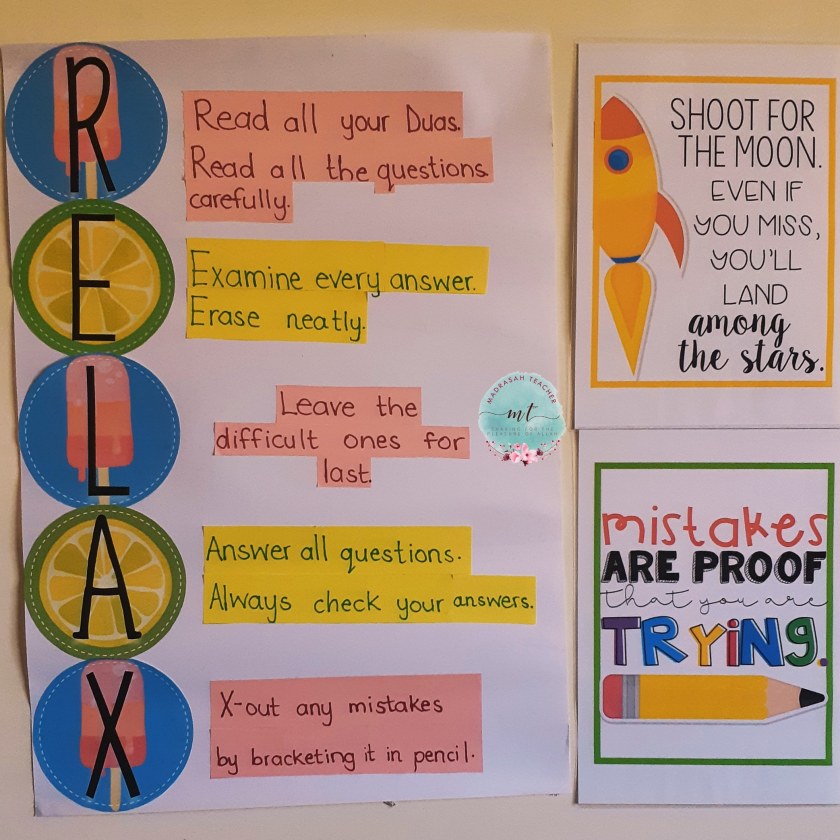 R
Read all your Duas.
Read all the questions
carefully.
E
Examine every answer.
Erase neatly.
L
Leave the
difficult ones for
last.
A
Answer all questions.
Always check your answers.
X
X-out any mistakes
by bracketing it in pencil.
MADRASAH TEACHER
mt
STRIVING FOR THE
PLEASURE OF ALLAH
SHOOT FOR
THE MOON.
EVEN IF
YOU MISS,
YOU'LL
LAND
among
the stars.
mistakes
ARE PROOF
that you are
TRYiNG.